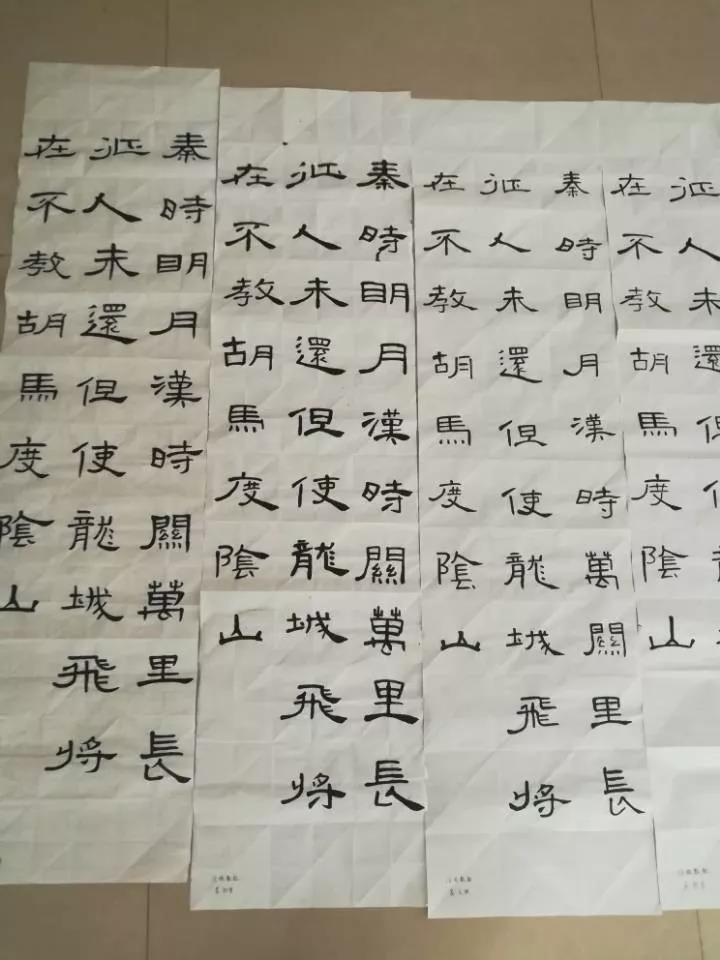 秦時眀月漢時關萬里長
征人未還但使龍城飛將
在不教胡馬度陰山
秦時眀月漢時關萬里長
征人未還但使龍城飛將
在不教胡馬度陰山
秦時眀月漢時萬關里長
征人未還但使龍城飛將
在不教胡馬度陰山
征人未還但
在不教胡馬度陰山